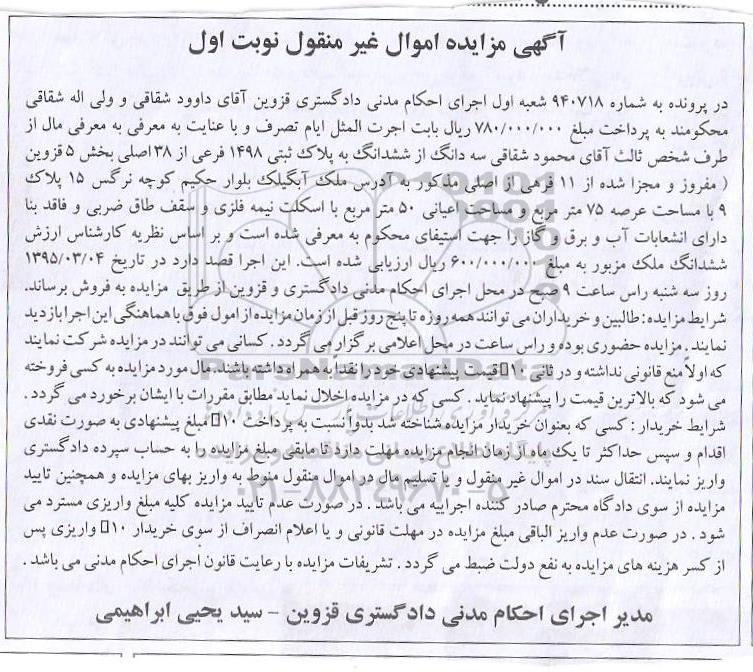 آگهی مزایده اموال غیر منقول نوبت اول
در پرونده به شماره ۹۴۰۷۱۸ شعبه اول اجرای احکام مدنی دادگستری قزوین آقای داوود شقاقی و ولی اله شقاقی
محکومند به پرداخت مبلغ ۷۸۰/۰۰۰/۰۰۰ ریال بابت اجرت المثل ایام تصرف و با عنایت به معرفی به معرفی مال از
طرف شخص ثالث آقای محمود شقاقی سه دانگ از ششدانگ به پلاک ثبتی ۱۴۹۸ فرعی از ۳۸ اصلی بخش ۵ قزوین
( مفروز و مجزا شده از ۱۱ فرهی از اصلی مذکور به آدرس ملک آبگیلک بلوار حکیم کوچه نرگس ۱۵ پلاک
۹ با مساحت عرصه ۷۵ متر مربع و مساحت اعیانی ۵۰ متر مربع با اسکلت نیمه فلزی و سقف طاق ضربی و فاقد بنا
دارای انشعابات آب و برق و گاز را جهت استیفای محکوم به معرفی شده است و بر اساس نظریه کارشناس ارزش
ششدانگ ملک مزبور به مبلغ ۶۰۰/۰۰۰/۰۰۰ ریال ارزیابی شده است. این اجرا قصد دارد در تاریخ ۱۳۹۵/۰۳/۰۴
روز سه شنبه راس ساعت ۹ صبح در محل اجرای احکام مدنی دادگستری و قزوین از طریق مزایده به فروش برساند.
شرایط مزایده : طالبین و خریداران می توانند همه روزه تا پنج روز قبل از زمان مزایده از امول فوق با هماهنگی این اجرا بازدید
نمایند . مزایده حضوری بوده و راس ساعت در محل اعلامی برگزار می گردد . کسانی می توانند در مزایده شرکت نمایند
که اولاً منع قانونی نداشته و در ثانی ۱۰□ قیمت پیشنهادی خود را نقداً به همراه داشته باشند. مال مورد مزایده به کسی فروخته
می شود که بالاترین قیمت را پیشنهاد نماید . کسی که در مزایده اخلال نماید مطابق مقررات با ایشان برخورد می گردد .
شرایط خریدار : کسی که بعنوان خریدار مزایده شناخته شد بدواً نسبت به پرداخت ۱۰□ مبلغ پیشنهادی به صورت نقدی
اقدام و سپس حداکثر تا یک ماه از زمان انجام مزایده مهلت دارد تا مابقی مبلغ مزایده را به حساب سپرده دادگستری
واریز نمایند. انتقال سند در اموال غیر منقول و یا تسلیم مال در اموال منقول منوط به واریز بهای مزایده و همچنین تایید
مزایده از سوی دادگاه محترم صادر کننده اجراییه می باشد . در صورت عدم تایید مزایده کلیه مبلغ واریزی مسترد می
شود . در صورت عدم واریز الباقی مبلغ مزایده در مهلت قانونی و یا اعلام انصراف از سوی خریدار ۱۰□ واریزی پس
از کسر هزینه های مزایده به نفع دولت ضبط می گردد . تشریفات مزایده با رعایت قانون اجرای احکام مدنی می باشد .
مدیر اجرای احکام مدنی دادگستری قزوین - سید یحیی ابراهیمی
ParsNamadData
۰۲۱-۸۸۳۴۹۶۷۰-۵